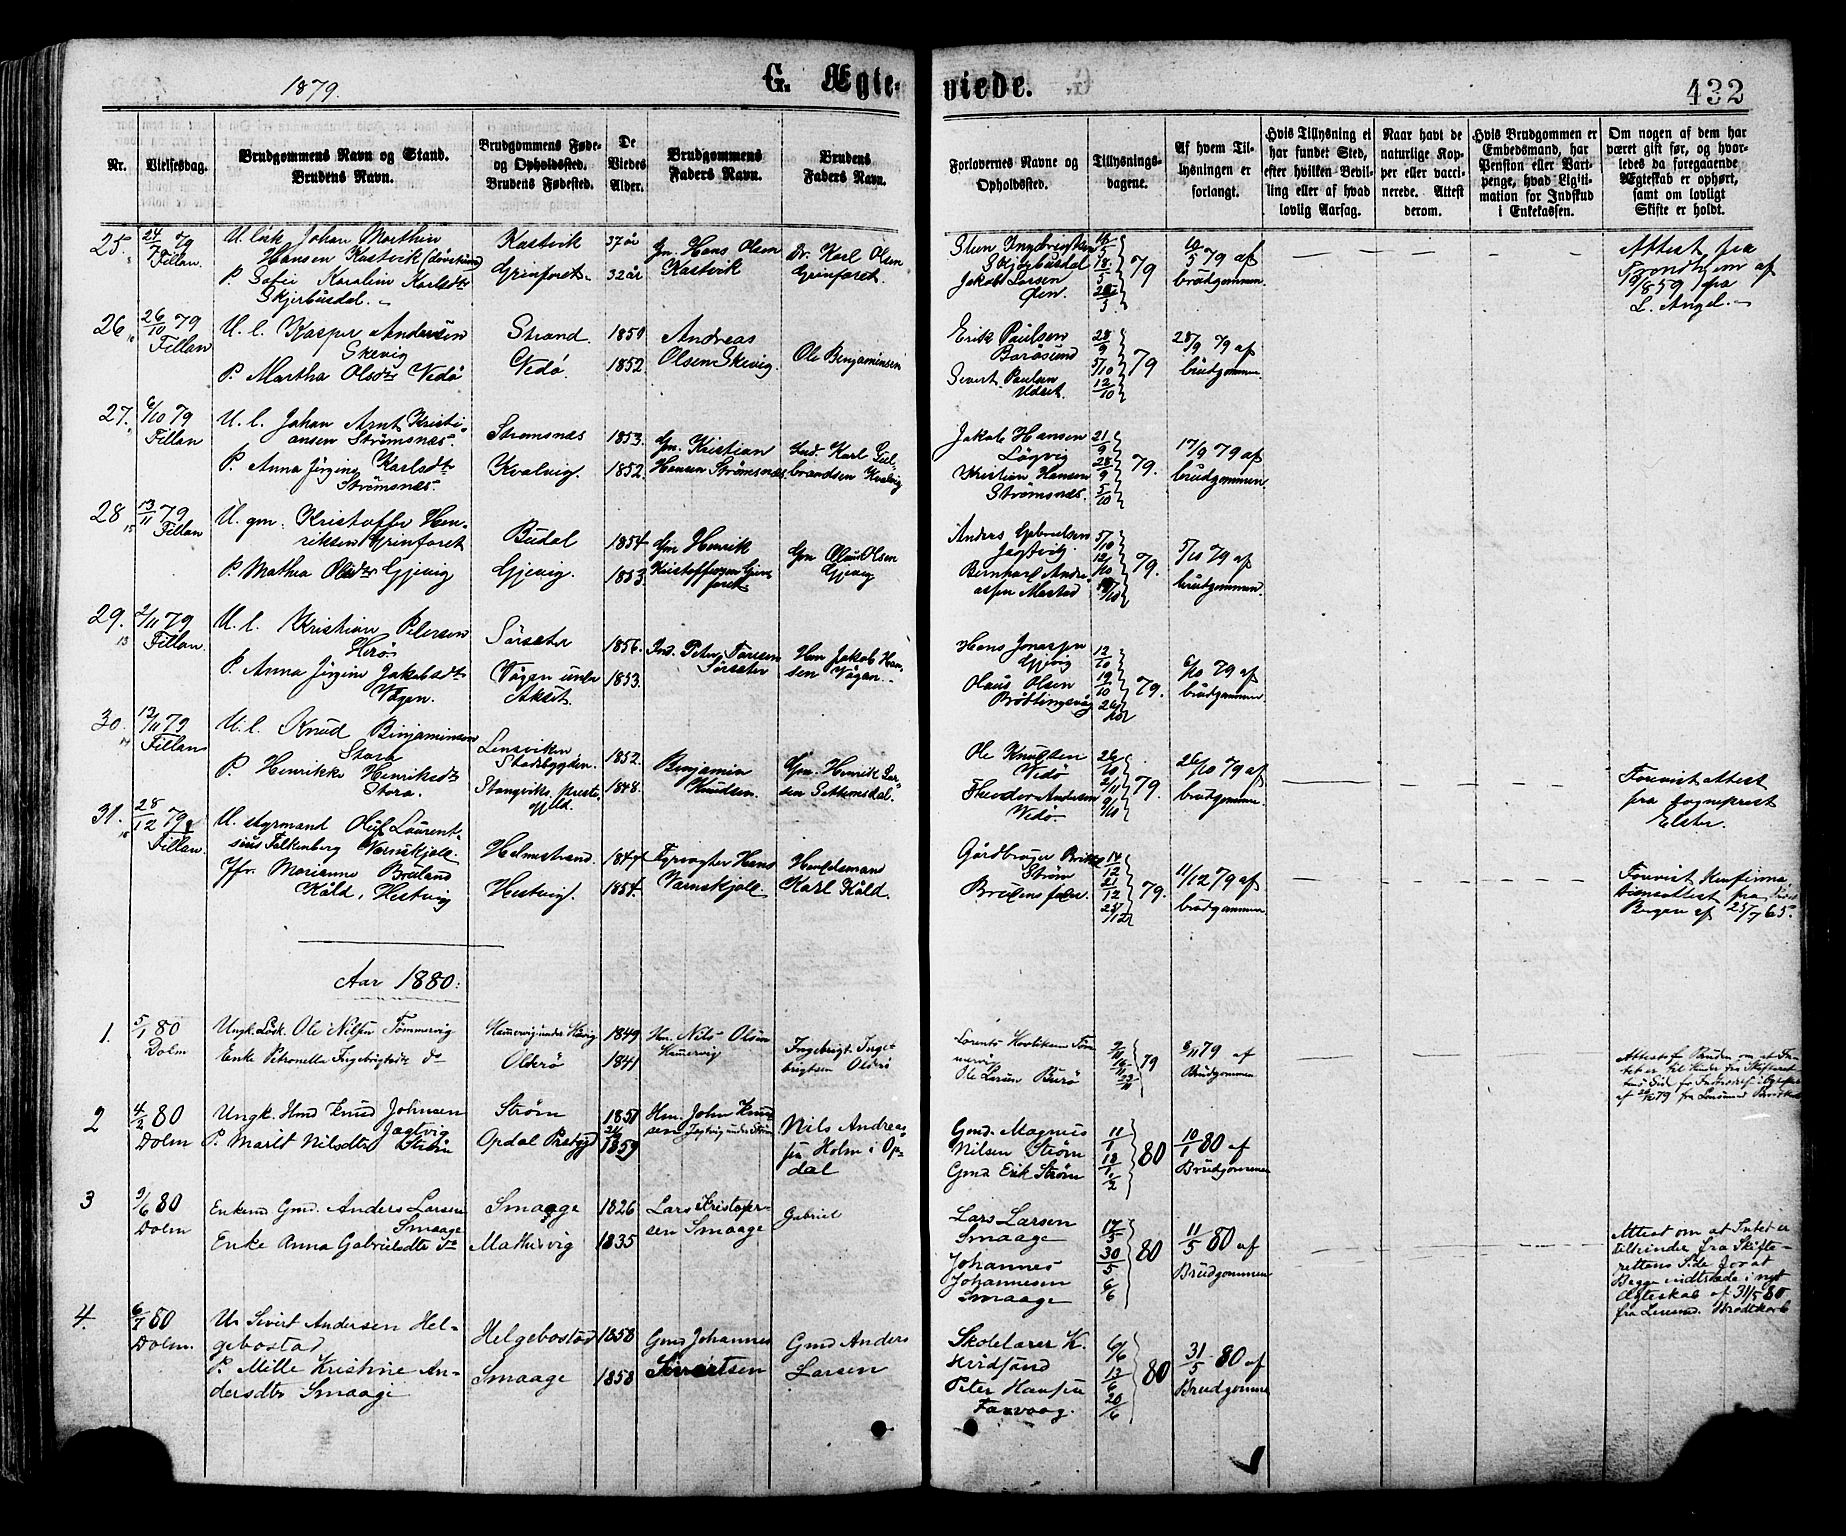 1879.
G. Ægte-
viede.
432
Nr.
Vielsesdag.
Brudgommens Navn og Stand.
Brudens Navn.
Brudgommens Føde-
og Opholdssted.
Brudens Fødested.
De
Viedes
Alder.
Brudgommens
Faders Navn.
Brudens
Faders Navn.
Forlovernes Navne og
Opholdssted.
Tillysnings-
dagene.
Af hvem Til-
lysningen er
forlangt.
Hvis Tillysning ei
har fundet Sted,
efter hvilken Bevil-
ling eller af hvad
lovlig Aarsag.
Naar havt de
naturlige Kop-
per eller vacci-
nerede. Attest
derom.
Hvis Brudgommen er
Embedsmand, har
Pension eller Vart-
penge, hvad Ligiti-
mation for Indskud
i Enkekassen.
Om nogen af dem har
været gift før, og hvor-
ledes da foregaaende
Ægteskab er ophørt,
samt om lovligt
Skifte er holdt.
25. 24/7 79
Fillan.
Johan Marthin
Hansen Kastvik
P. Sofie Karoline Karlsdtr
Skjerbusdal.
Kastvik
Grinforet.
37 år
32 år
Gm. Hans Olsen
Kastvik
Dr. Karl Olsen
Grinforet.
Sten Ingebrigtsen
Skjerbusdal
Jakob Larsen
Øen.
79
79 af
brudgommen.
Attest fra
Trondhjem af
L. Angel.
26 26/10 79
Fillan
U. l. Kasper Andersen
Skevig
P. Martha Olsdtr Vedø
Strand.
Vedø.
1850
1852.
Andreas
Olsen Skevig.
Ole Benjaminsen
Erik Paulsen
Barøsund
Sivert Paulsen
Udset.
28/9
5/10
12/10
79
28/9 79 af
brudgommen.
27. 6/10 79
Fillan
U. l. Johan Arnt Kristi-
ansen Strømsnæs.
P. Anna Jørgine Karlsdtr
Strømsnæs.
Strømsnæs
Kvalvig.
1853.
1852.
Gm. Kristian
Hansen Strømsnæs.
Karl Gul-
brandsen Kvalvig
Jakob Hansen
Løgvig
Kristian Hansen
Strømsnæs.
21/9
28/9
5/10
79.
17/9 79 af
brudgommen.
28 13/11 79
Fillan
U. gm. Kristoffer Hen-
riksen Grinforet
P. Mathea Olsdtr Gjevig
Budal
Gjevig.
1854
1853.
Gm Henrik
Kristoffersen Grin-
foret
Gm Olaus Olsen
Gjevig
Anders Gabrielsen
Jagtvig.
Bernhard Andre-
assen Mastad
5/10
12/10
19/10
79.
5/10 79 af
brudgommen.
29. 2/11 79
Fillan.
U. l. Kristian Petersen
Herø
P. Anna Jørgine Jakobsdtr
Vågen.
Sørsæter
Vågen under
Akset.
1856.
1853.
Ind. Peter Larssen
Sørsæter
Hm Jakob Han-
sen Vågan.
Hans Jonassen
Gjevig
Olaus Olsen
Brøttingsvåg
12/10
19/10
26/10
79.
6/10 79 af
brudgommen.
30. 13/11 79
Fillan
U. l. Knud Binjaminsen
Stora
P. Henrikke Henriksdtr
Stora.
Lensviken
Stadsbygden.
Stangviks præste-
gjeld.
1852.
1848.
Benjamin
Knudsen.
Gm. Henrik Lar-
sen Settemsdal.
Ole Knudsen
Vedø
Theodor Andersen
Vedø.
26/10
2/11
9/10
79.
26/10 79 af
brudgommen.
Forevist attest
fra sogneprest
Elster.
31. 28/12 79
Fillan.
U. styrmand Oluf Laurent-
sius Falkenberg Varnskjole
Jfr. Marianne Breiland
Kåld, Hestvig
Holmestrand.
Hestvig.
1847
1854.
Fyrvogter Hans
Varnskjole
Handelsmand
Karl Kåld.
Gårdbruger
Strøm
Brudens fader.
14/12
21/12
25/12
79.
11/12 79 af
brudgommen.
Forevist Konfirma-
tionsattest fra
Bergen af 25/7 65.
Aar 1880.
1. 5/1 80
Dolm
Ungk. Løsk. Ole Nilsen Tømmervig
Enke Petronella Ingebrigtsdtr do
Hamervig under
Olderø
1849
1841
Hm. Nils Olsen
Hamervig
Ingebrigt Inge-
brigtsen Olderø
Lorents
Ole Larsen Burø
79
6/11 79 af
Brudgommen
Attest fra Bruden om at In-
tet er til Hinder fra Skifteret-
2 4/2 80
Dolm
Ungk. Hmd Knud Johnsen
Jagtvig
P. Marit Nilsdtr Strøm
Strøm
Opdal Prstgjd
1851
1859
Hm. John Knud-
sen Jagtvig under Strøm
Nils Andreas-
sen Holm i Op-
dal
Gmd. Magnus
Nilsen Strøm
Gmd Erik Strøm
11/1
18/1
1/2
80
10/1 80 af
Brudgommen
3 9/6 80
Dolm
Enkemd Gmd. Anders Larsen
Smaage
Enke Anna Gabrielsdtr do
Smaage
Mathisvig
1826
1835
Lars Kristoffer-
sen Smaage
Gabriel
Lars Larsen
Smaage
Johannes
Johannesen
Smaage
17/5
30/5
6/6
80
11/5 80 af
Brudgommen
Attest om at Intet er
til Hinder fra Skifte-
rettens Side for at
Begge indtræde i nyt
Ægteskab af 31/5 80
fra Lensmd. Brødtkorb
4. 6/7 80
Dolm.
U. Sivert Andersen Hel-
gebostad
P. Mille Kristine An-
dersdtr Smaage
Helgebostad
Smaage
1858
1858
Gmd Johannes
Sivertsen
Gmd Anders
Larsen
Skolelærer K.
Hvidsand
Peter Hansen
Faxvaag.
6/6
13/6
20/6
80
31/5 80 af
Brudgommen